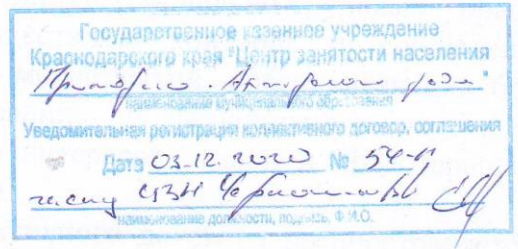 Государственное казенное учреждение
Краснодарского края "Центр занятости населения
Приморско-Ахтарского р-на"
наименование муниципального образования
Уведомительная регистрация коллективного договор, соглашения
Дата 03.12.2020 № 54-п
ЦЗН
наименование должности, подпись, Ф.И.О.